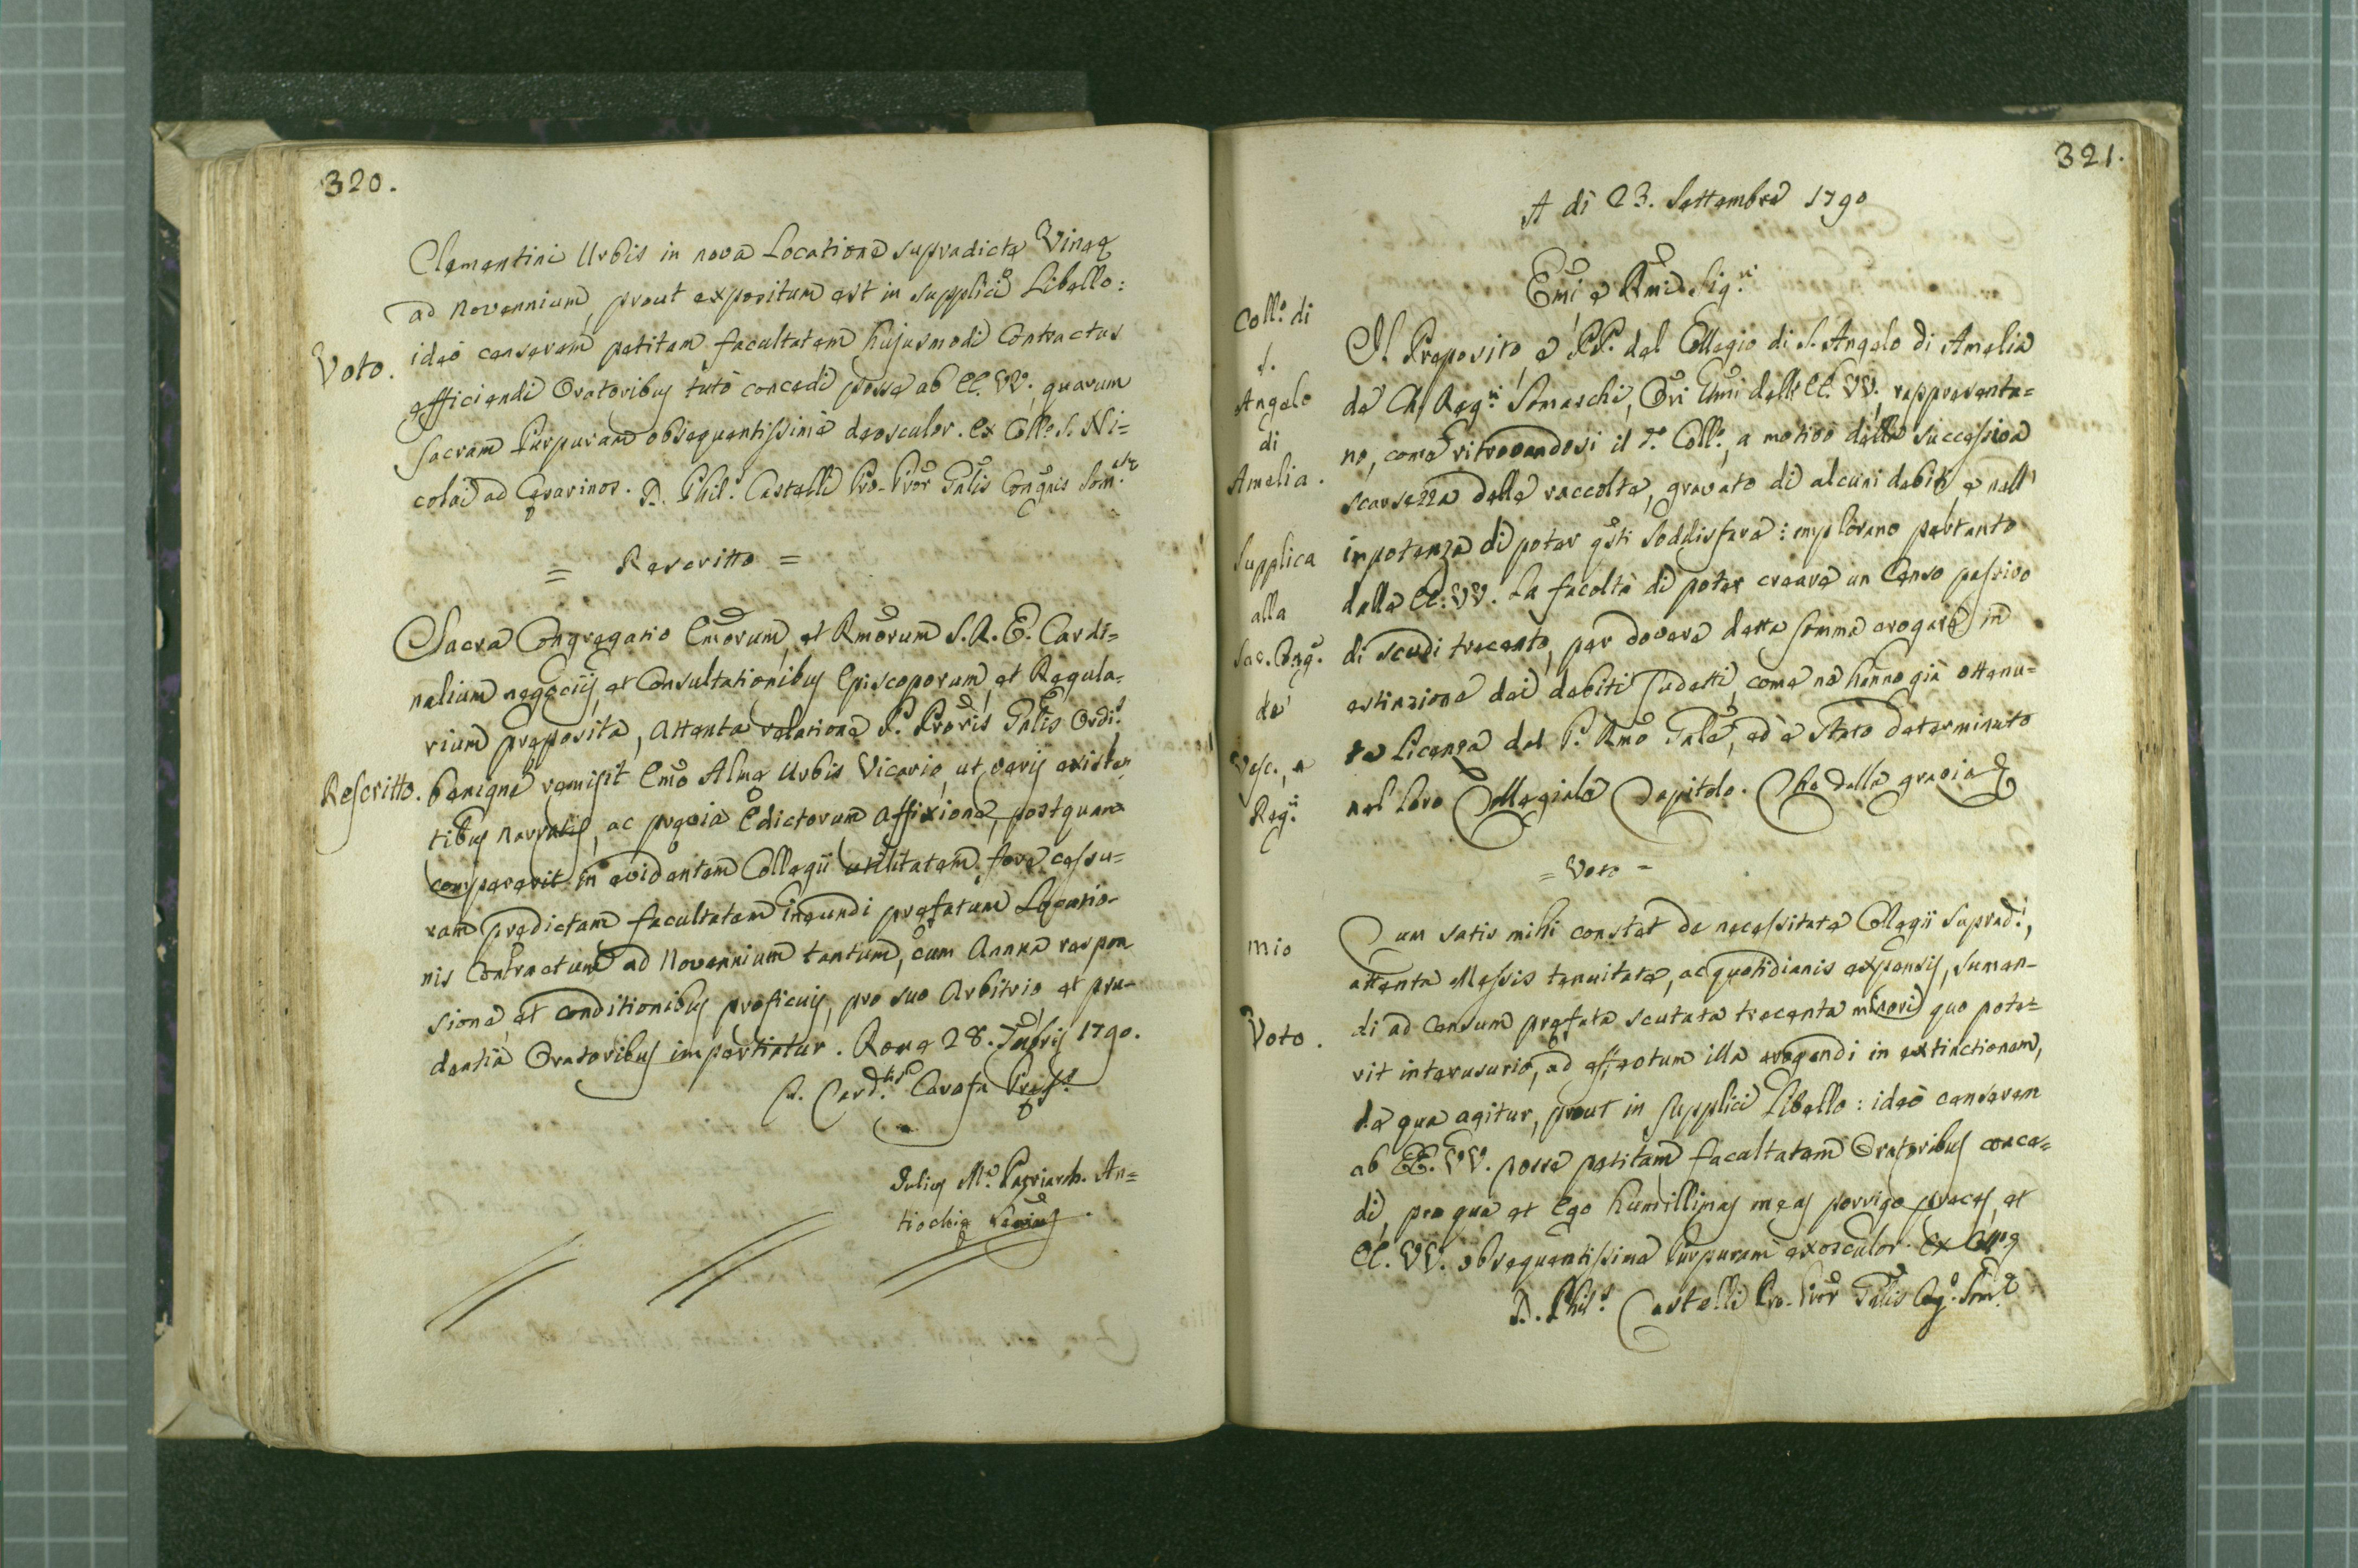 320.
Clementini Urbis in nova Locatione supradictę Vineę
ad Novennium, prout expositum est in supplici Libello:
Voto. ideò censerem petitam facultatem hujusmodi Contractus
efficiendi Oratoribus tutò concedi posse ab EE. VV., quarum
Sacram Purpuram obsequentissimè deosculor. Ex Collo. S. Ni=
colai ad Cęsarinos. D. Phil.s Castelli Pro-Pror Gnlis Congnis Som.
= Rescritto =
Sacra Congregatio Emorum, et Rmorum S. R. E. Cardi=
nalium negociis, et Consultationibus Episcoporum, et Regula-
rium pręposita, attenta relatione P. Proris Gnlis Ordis
Rescritto. benignè remisit Emo Almę Urbis Vicario, ut veris existen
tibus narratis, ac pręvia Edictorum affixione, postquam
compererit in evidentem Collegii utilitatem fore cessu=
ram prędictam facultatem ineundi pręfatum Locatio-
nis Contractum ad Novennium tantum, cum annua respon
sione, et conditionibus proficuis, pro suo Arbitrio, et pru-
dentia Oratoribus impertiatur. Romę 28. 7mbris 1790.
Card.lis Carafa Pręf.s
Julius M.a Patriarch. An=
tiochię
321.
A dì 23. Settembre 1790
Emi e Rmi Sig.ri
Coll.o di
S.
Angelo
di
Amelia.
Supplica
alla
Sac. Cong.
de'
Vesc., e
Reg.ri
Il Preposito, e PP. del Collegio di S. Angelo di Amelia
de' Ch. Reg.ri Somaschi, Ori Umi dell' EE. VV. rappresenta=
no, come ritrovandosi il d.o Coll.o, a motivo delle successive
scarsezza delle raccolte, gravato di alcuni debiti, e nell'
impotenza di poter qsti soddisfare: implorano pertanto
dalle EE. VV. la facoltà di poter creare un Censo passivo
di scudi trecento, per dovere detta somma erogare in
estinzione dei debiti sudetti, come ne hanno già ottenu=
ta licenza dal P. Rmo Gnle, ed è stato determinato
nel loro Collegiale Capitolo. Che della grazia &
= Voto =
mio
Voto.
Cum satis mihi constet de necessitate Collegii supradi.,
attenta Messis tenuitate, ac quotidianis expensis, sumen-
di ad Censum pręfata scutata trecenta minori quo pote=
rit interusurio, ad effectum illa erogandi in extinctionem,
de qua agitur, prout in supplici Libello: ideò censerem
ab EE. VV. posse petitam facultatem Oratoribus conce=
di, pro qua et Ego humillimas meas porrigo preces, et
EE. VV. obsequentissime Purpuram exosculor.
D. Phil.s Castelli Pro-Pror Gnlis Cong. Som.